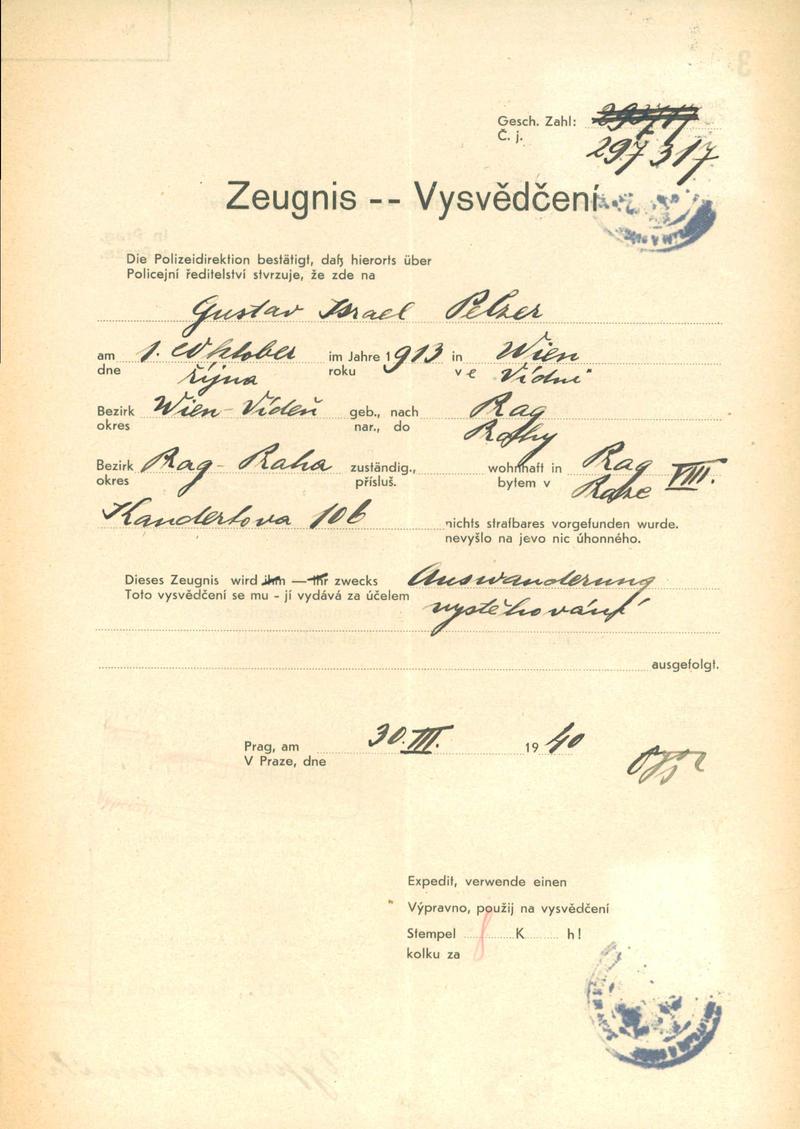 Gesch. Zahl: 293717
Č. j.
297317
Zeugnis -- Vysvědčení
Die Polizeidirektion bestätigt, daß hierorts über
Policejní ředitelství stvrzuje, že zde na
Gustav Israel Pelzer
am 1. Oktober im Jahre 1913 in Wien
dne října roku ve Vídni
Bezirk Wien - Vídeň geb., nach Rag
okres nar., do Rahy
Bezirk Rag - Raha zuständig., wohnhaft in Rag VIII.
okres přísluš. bytem v Raze
Kandertova 106 nichts strafbares vorgefunden wurde.
nevyšlo na jevo nic úhonného.
Dieses Zeugnis wird ihm — ihr zwecks Auswanderung
Toto vysvědčení se mu - jí vydává za účelem vystěhování
ausgefolgt.
Prag, am 30. III. 1940
V Praze, dne
Expedit, verwende einen
Výpravno, použij na vysvědčení
Stempel 8 K h!
kolku za